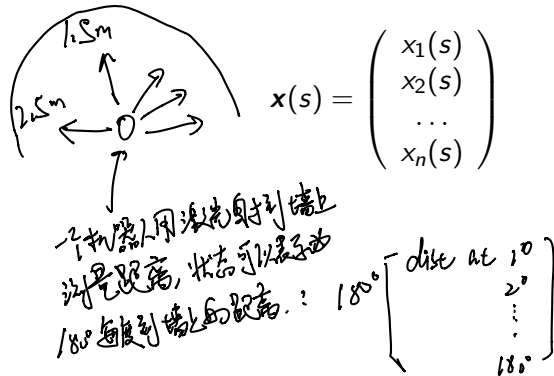 1.5m
2.5m
x(s) = ( x₁(s)
x₂(s)
...
xₙ(s) )
一个机器人用激光射到墙上
测量距离, 状态可以表示为
180° 每度到墙上的距离.:
180° [ dist at 1°
2°
⋮
180° ]